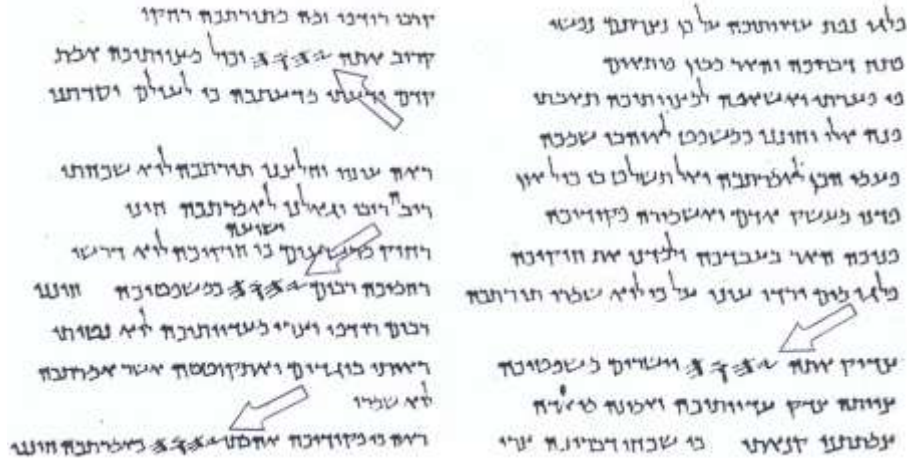 פלגי נפת עדוותיכה על כן נצרתם נפשי
פתח דבריכה והאר מבין פותאים
פי פערתי ואשאפה למצוותיכה תאבתי
פנה אלי וחונני כמשפט לאוהבי שמכה
פעמי הכן לאמרתכה ואל תשלט בי כול און
פדני מעשק אדם ואשמורה פקודיכה
פניכה האר בעבדיכה ולמדני את חוקיכה
פלגי מים ירדו עיני על כי לוא שמרו תורתכה
צדיק אתה 𐤉𐤄𐤅𐤄 וישרים משפטיכה
צויתה צדק עדוותיכה ואמונה מאדה
צמתתני קנאתי כי שכחו דבריכה צרי
קרבו רודפי זמה מתורתכה רחקו
קרוב אתה 𐤉𐤄𐤅𐤄 וכול מצוותיכה אמת
קדם ידעתי מדעתכה כי לעולם יסדתני
ראה עוניי וחלצני תורתכה לוא שכחתי
ריבה ריבי וגאלני לאמרתכה חיני
ישועה
רחוק מרשעים כי חוקיכה לוא דרשו
רחמיכה רבים 𐤉𐤄𐤅𐤄 כמשפטיכה חונני
רבים רודפי וצרי מעדוותיכה לוא נטיתי
ראיתי בוגדים ואתקוטטה אשר אמרתכה
לוא שמרו
ראה כי פקודיכה אהבתי 𐤉𐤄𐤅𐤄 כאמרתכה חונני